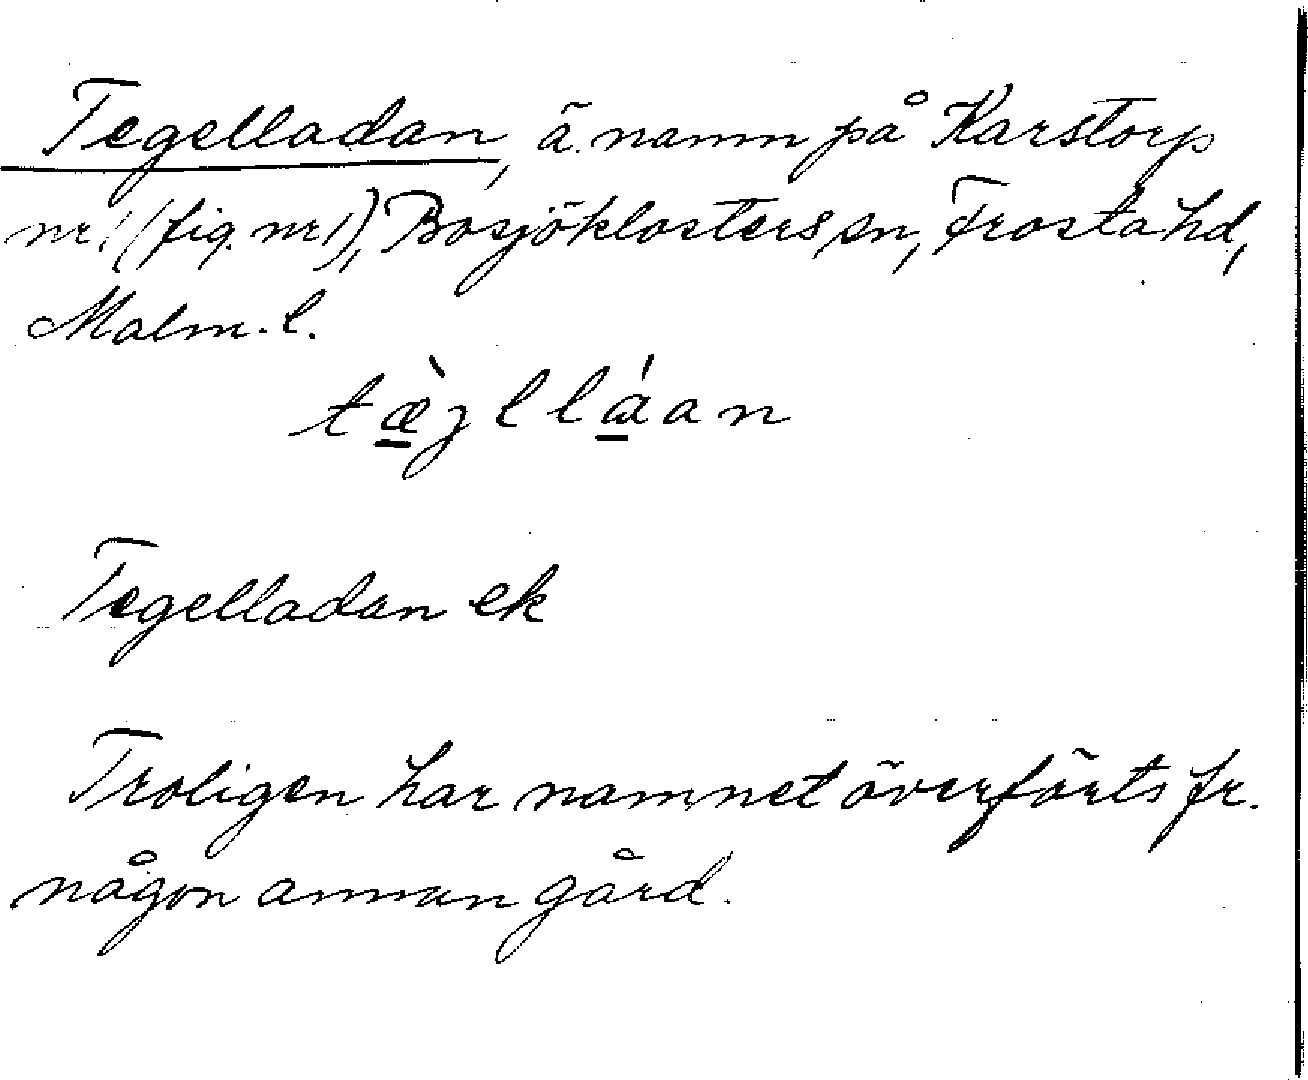 Tegelladan, ä. namn på Karstorp
nr 1 (fig. nr 1), Bosjöklosters sn, Frosta hd,
Malm. l.
tæ̀jlláan
Tegelladan ek
Troligen har namnet överförts fr.
någon annan gård.